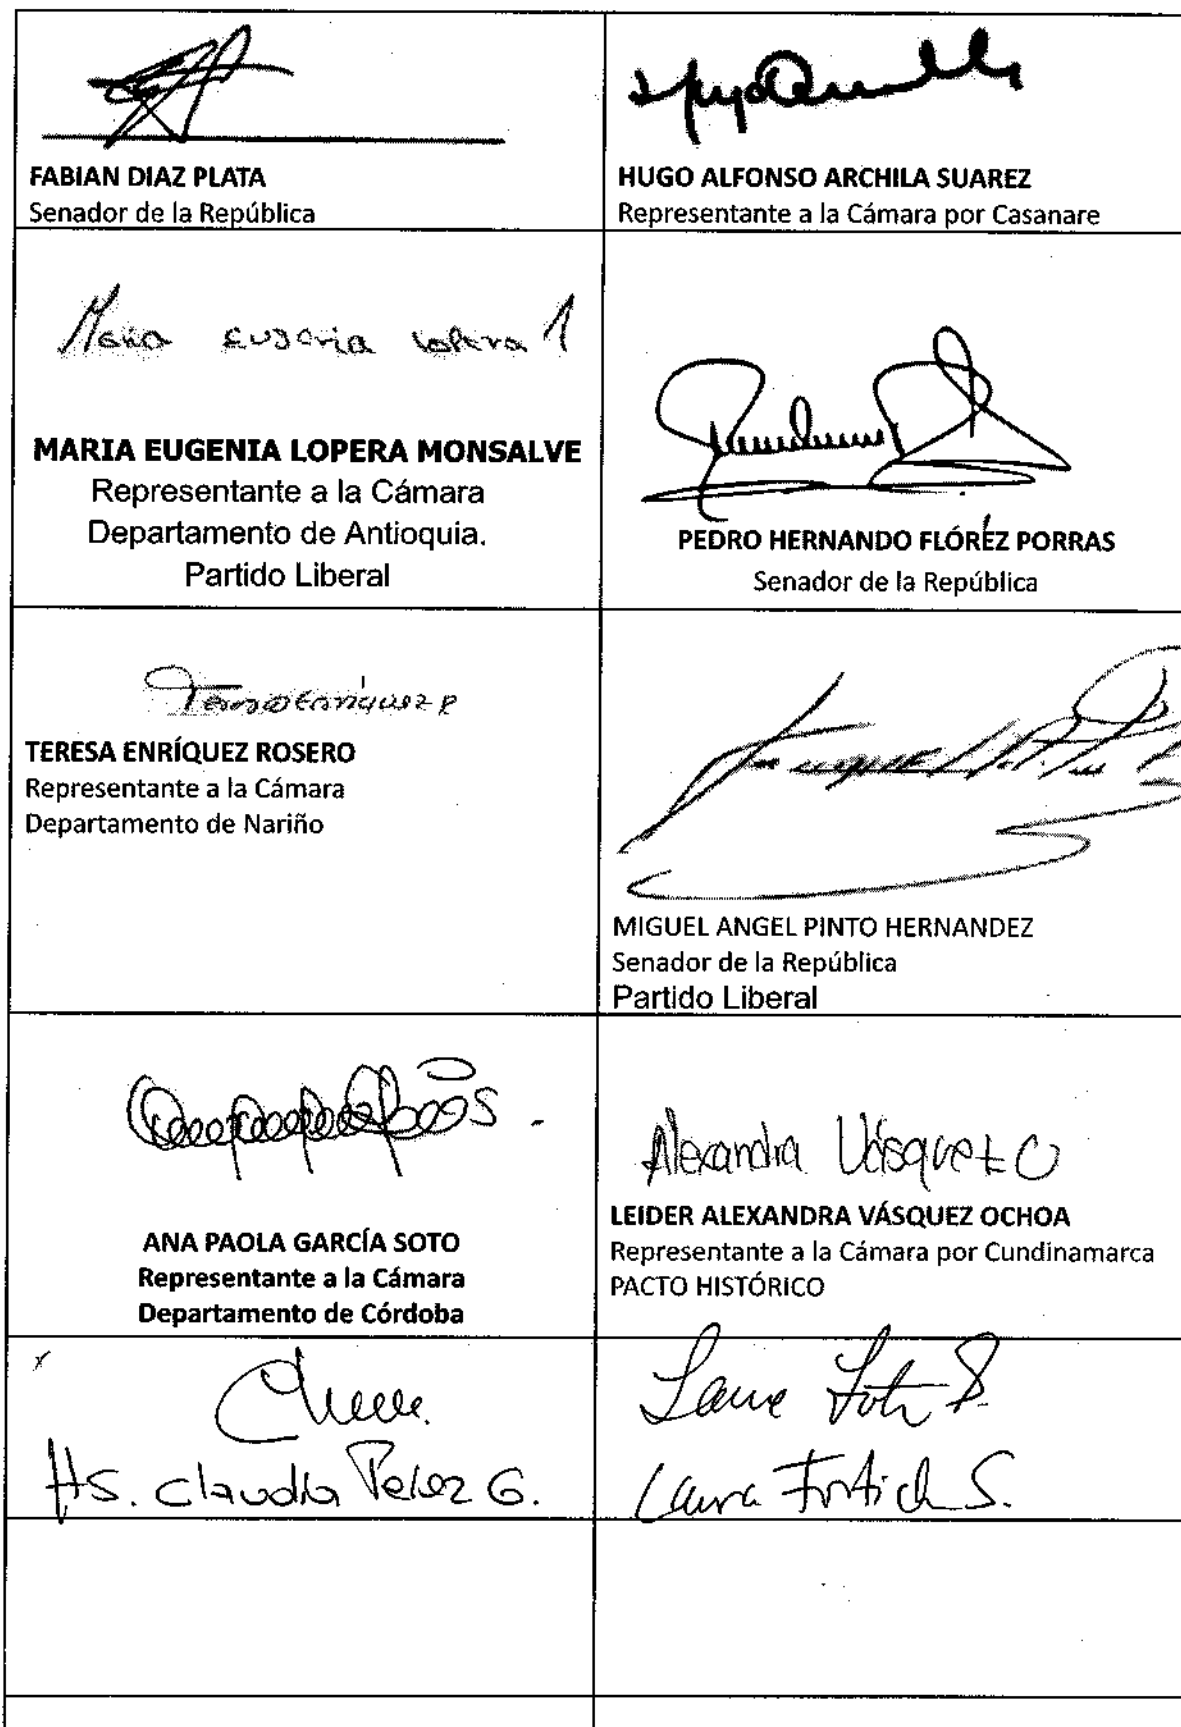 FABIAN DIAZ PLATA
Senador de la República
HUGO ALFONSO ARCHILA SUAREZ
Representante a la Cámara por Casanare
Maria Eugenia Lopera M
MARIA EUGENIA LOPERA MONSALVE
Representante a la Cámara
Departamento de Antioquia.
Partido Liberal
PEDRO HERNANDO FLÓREZ PORRAS
Senador de la República
Teresa Enríquez R
TERESA ENRÍQUEZ ROSERO
Representante a la Cámara
Departamento de Nariño
MIGUEL ANGEL PINTO HERNANDEZ
Senador de la República
Partido Liberal
ANA PAOLA GARCÍA SOTO
Representante a la Cámara
Departamento de Córdoba
Alexandra Vásquez O
LEIDER ALEXANDRA VÁSQUEZ OCHOA
Representante a la Cámara por Cundinamarca
PACTO HISTÓRICO
HS. Claudia Perez G.
Laura Fortich S.